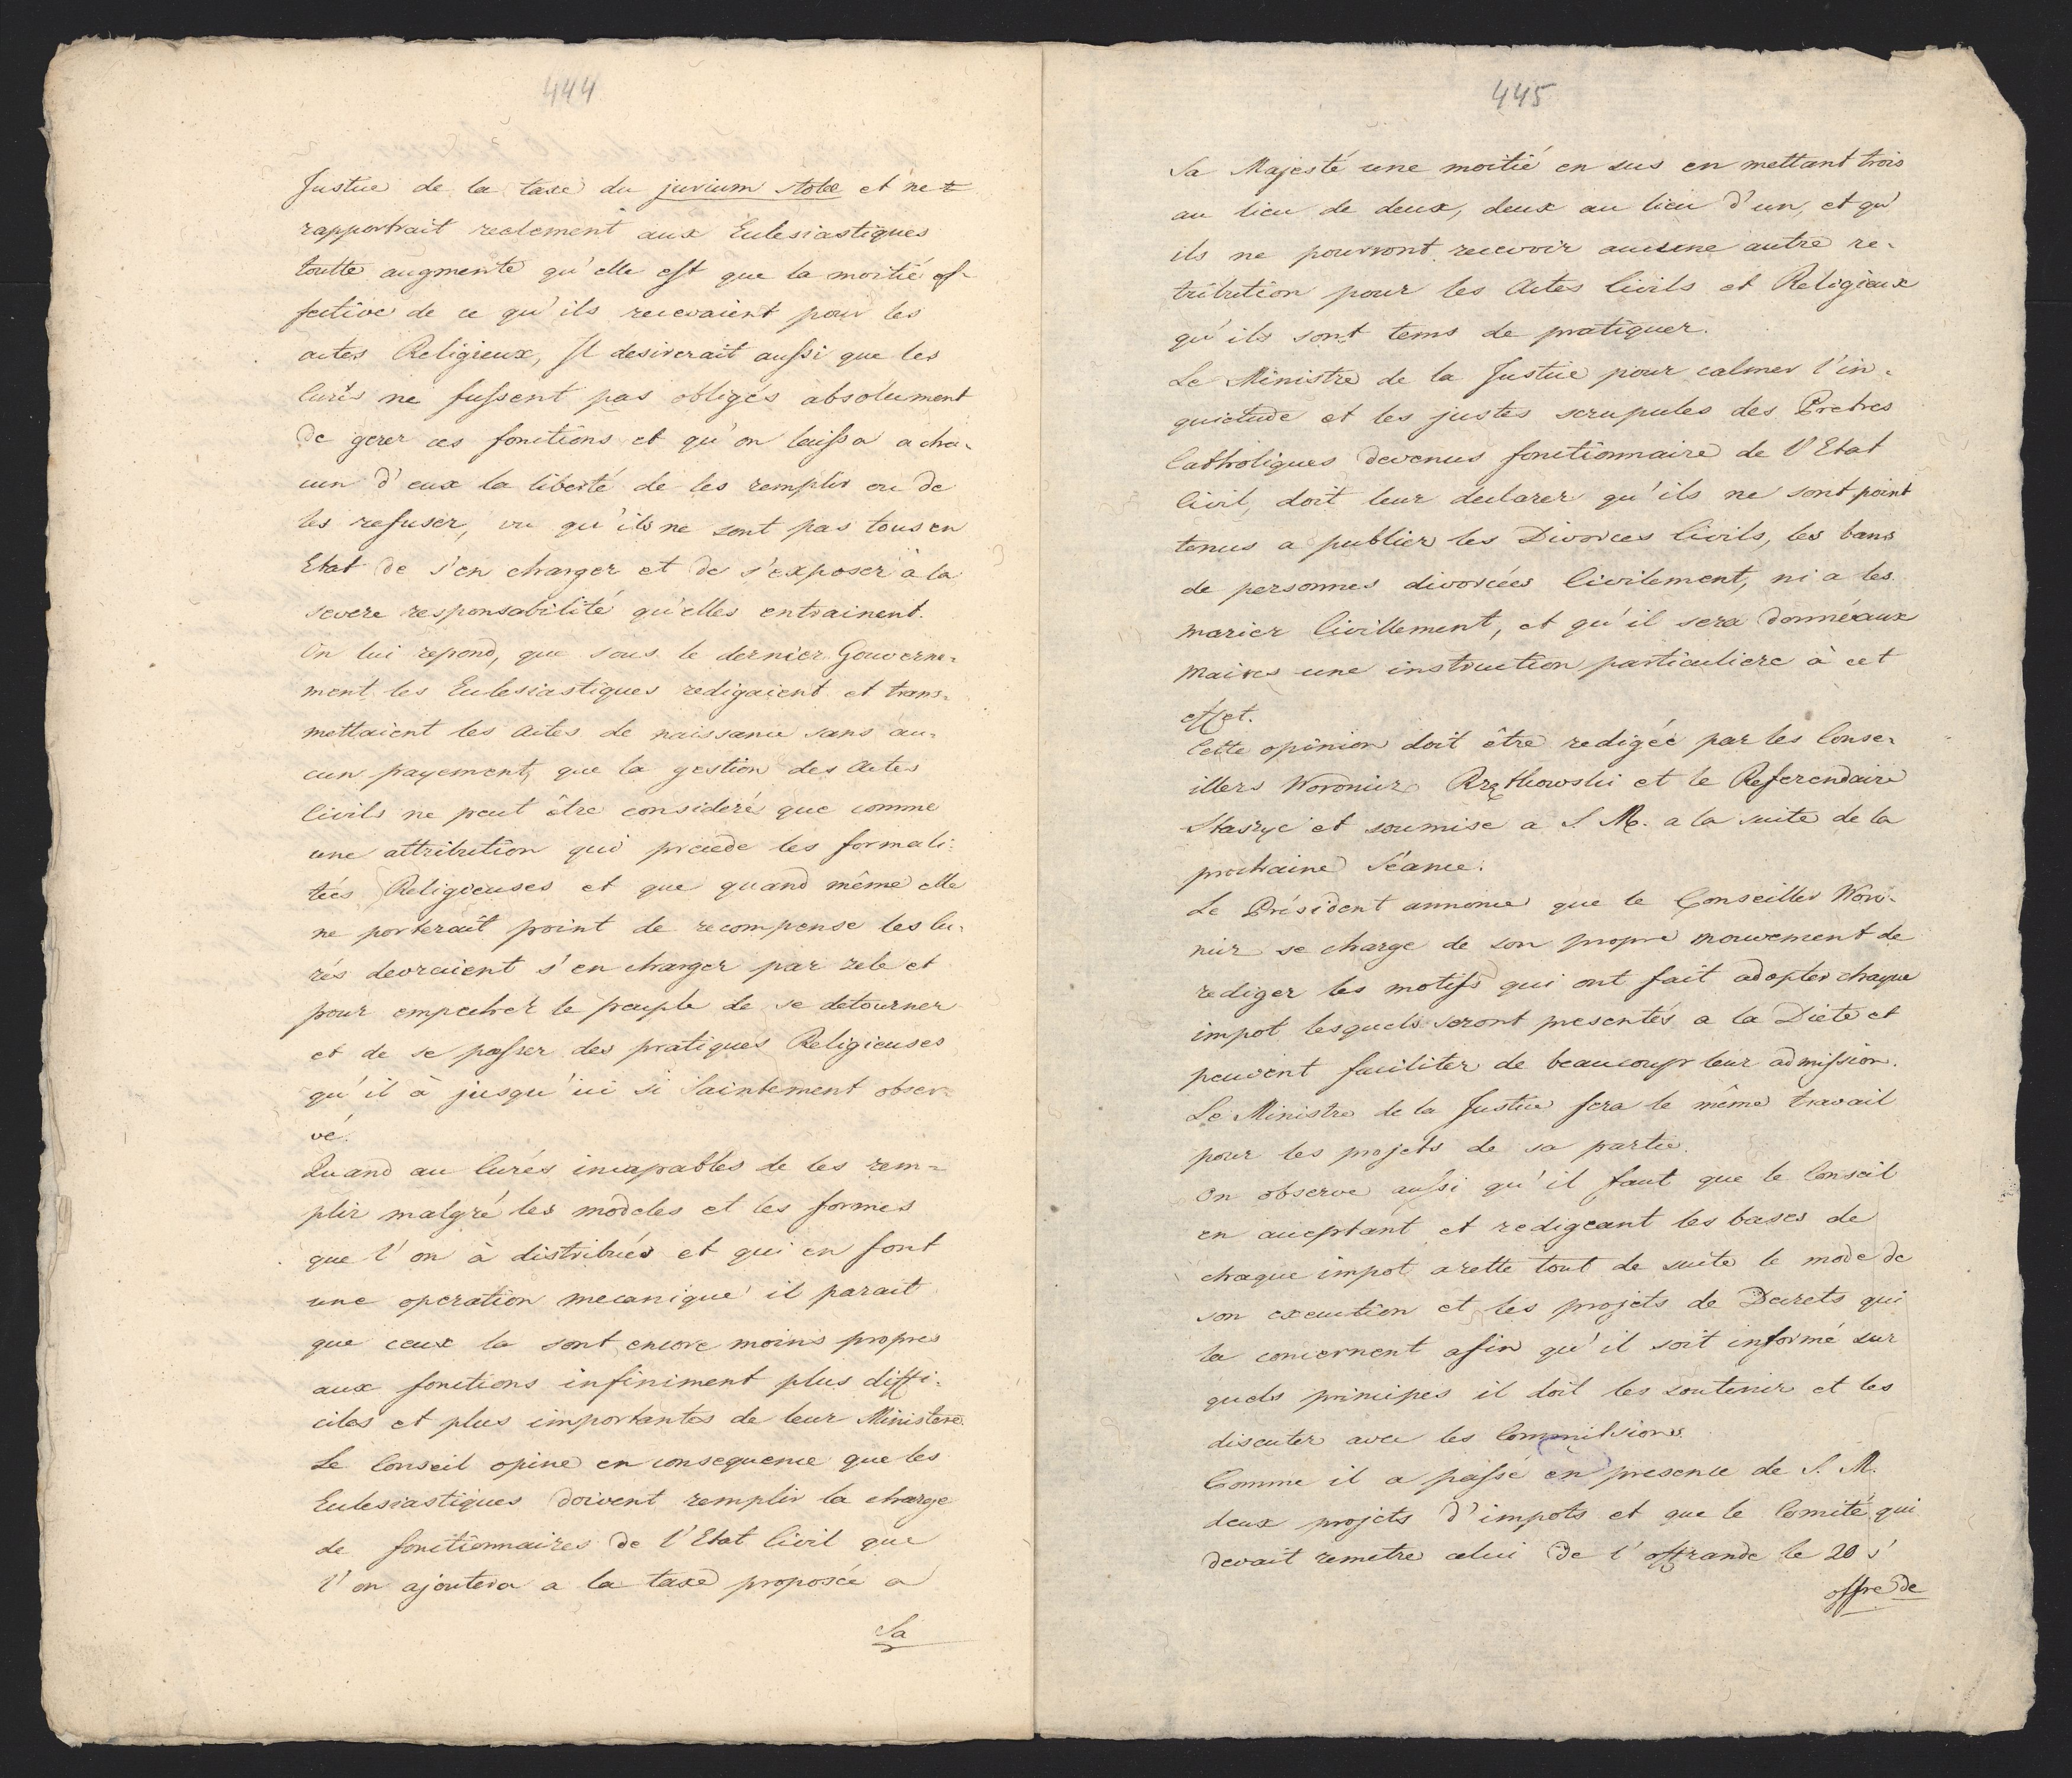 444
Justice de la taxe du jurium stolæ et ne
rapportrait reelement aux Eclesiastiques
toutte augmente qu'elle est que la moitié ef-
fective de ce qu'ils recevaient pour les
actes Religieux, Il desirerait aussi que les
Curés ne fussent pas obligés absolument
de gerer ces fonctions et qu'on laissa a cha-
cun d'eux la liberté de les remplir ou de
les refuser, vu qu'ils ne sont pas tous en
Etat de s'en charger et de s'exposer à la
severe responsabilité qu'elles entrainent.
On lui repond, que sous le dernier Gouverne-
ment les Eclesiastiques redigaient et trans-
mettaient les actes de naissance sans au-
cun payement, que la gestion des Actes
Civils ne peut être consideré que comme
une attribution qui precede les formali-
tées Religieuses et que quand même elle
ne porterait point de recompense les Cu-
rés devraient s'en charger par zele et
pour empecher le peuple de se detourner
et de se passer des pratiques Religieuses
qu'il à jusqu'ici si Saintement obser-
vé.
Quand au Curés incapables de les rem-
plir malgré les modeles et les formes
que l'on à distribués et qui en font
une operation mecanique il parait
que ceux la sont encore moins propres
aux fonctions infiniment plus diffi-
ciles et plus importantes de leur Ministere.
Le Conseil opine en consequence que les
Eclesiastiques doivent remplir la charge
de fonctionnaires de l'Etat Civil que
l'on ajoutera a la taxe proposée a
Sa
445
Sa Majesté une moitié en sus en mettant trois
au lieu de deux, deux au lieu d'un, et qu'
ils ne pourront recevoir aucune autre re-
tribution pour les Actes Civils et Religieux
qu'ils sont tems de pratiquer.
Le Ministre de la Justice pour calmer l'in-
quietude et les justes scrupules des Pretres
Catholiques devenus fonctionnaire de l'Etat
Civil, doit leur declarer qu'ils ne sont point
tenus a publier les Divorces Civils, les bans
de personnes divorcées Civilement, ni a les
marier Civillement, et qu'il sera donné aux
Maires une instruction particuliere à cet
effet.
Cette opinion doit être redigée par les Conse-
illers Woronicz Rzętkowski et le Referendaire
Staszyc et soumise a S. M. a la suite de la
prochaine Séance.
Le Président annonce que le Conseiller Woro-
nicz se charge de son propre mouvement de
rediger les motifs qui ont fait adopter chaque
impot lesquels seront presentés a la Diete et
peuvent faciliter de beaucoup leur admission.
Le Ministre de la Justice fera le même travail
pour les projets de sa partie.
On observe aussi qu'il faut que le Conseil
en acceptant et redigeant les bases de
chaque impot arette tout de suite le mode de
son execution et les projets de Decrets qui
la concernent afin qu'il soit informé sur
quels principes il doit les soutenir et les
discuter avec les Commissions.
Comme il a passé en presence de S. M.
deux projets d'impots et que le Comité qui
devait remetre celui de l'offrande le 20 s'
offre de